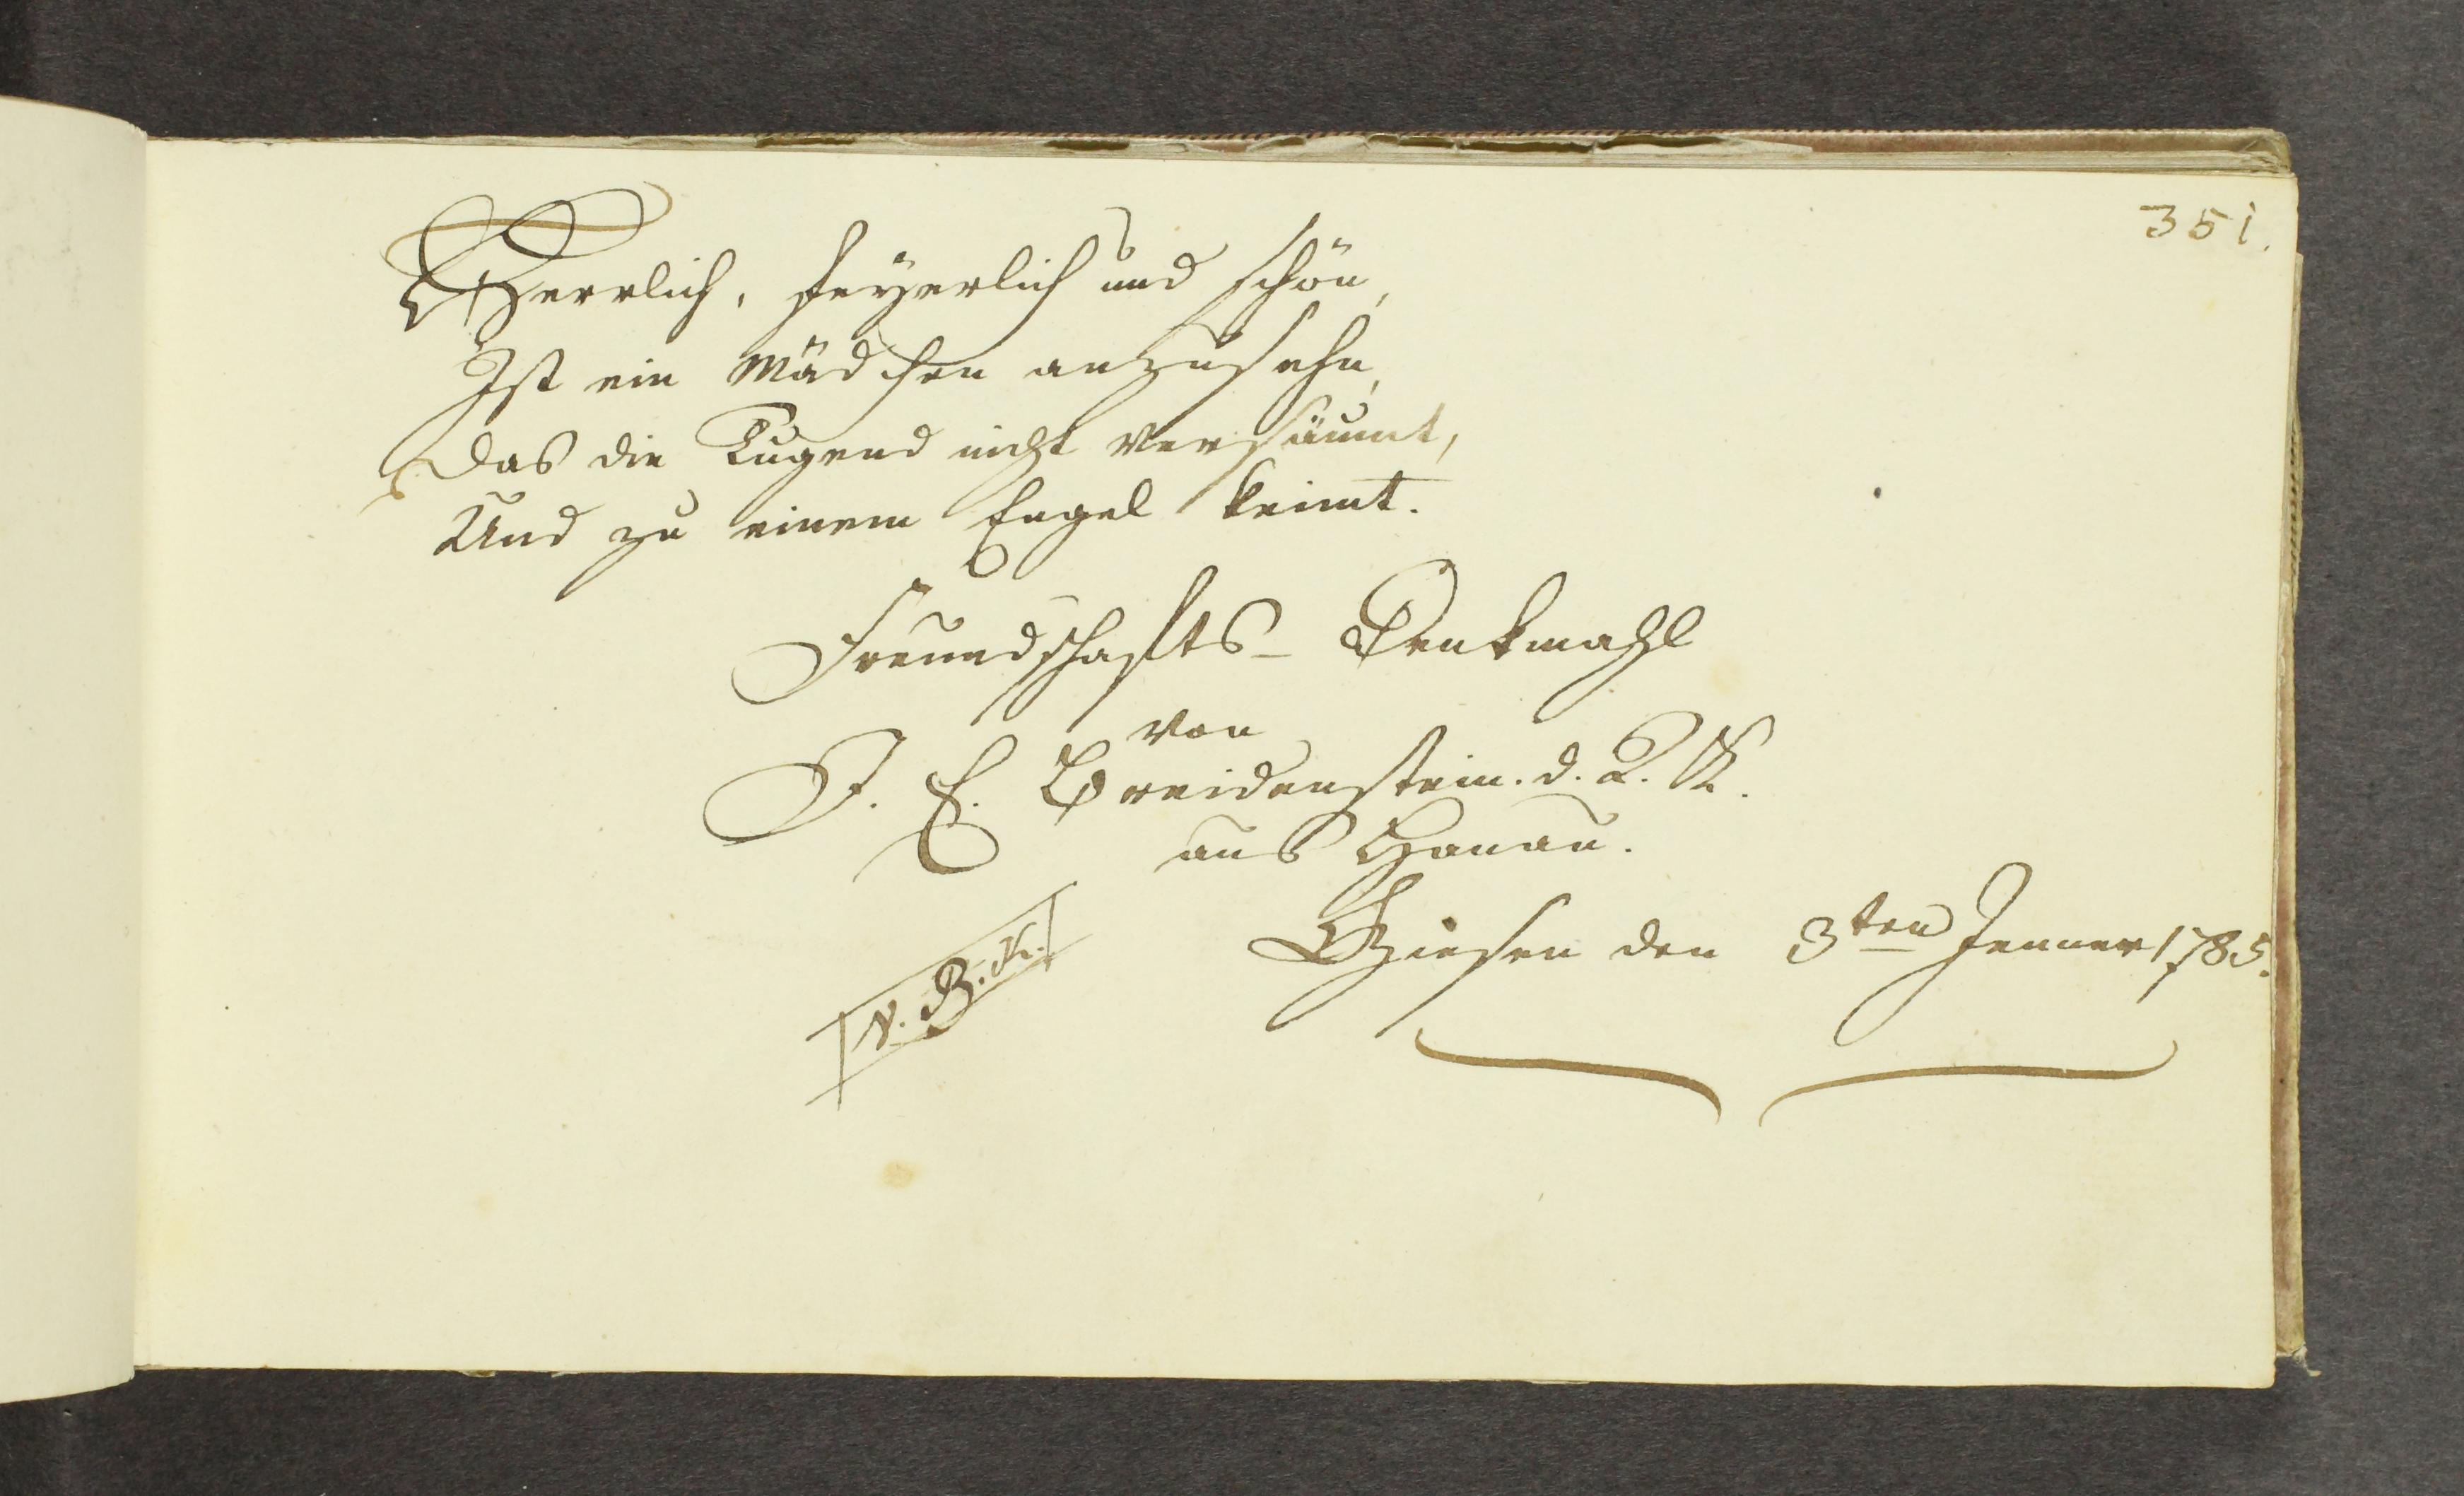 351.
Herrlich, feyerlich und schön,
Ist ein Mädchen anzusehn,
Das die Tugend nicht versäumt,
Und zu einem Engel keimt.
Freundschafts- Denkmahl
von
J. E. Breidenstein. d. R. K.
aus Hanau.
Giesen den 3ten Jenner 1785.
N. B. K.